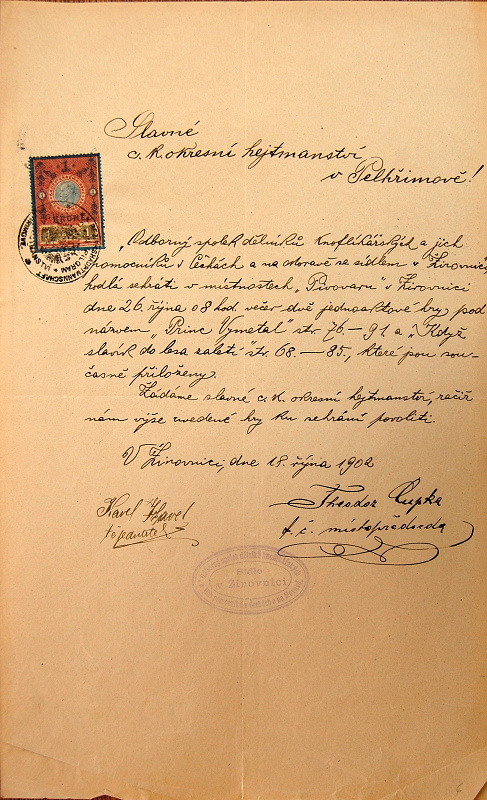 Slavné
c. k. okresní hejtmanství
v Pelhřimově!
1
KRONE
„Odborný spolek dělníků knoflíkářských a jich
pomocníků v Čechách a na Moravě se sídlem v Žirovnici
hodlá sehráti v místnostech „Pivovaru" v Žirovnici
dne 26. října o 8 hod. večer dvě jednoaktové hry pod
názvem „Princ Vymetal" str. 76 – 91 a „Když
slavík do lesa zaletí" str. 68. – 85., které jsou sou-
časně přiloženy.
Žádáme slavné c. k. okresní hejtmanství, račiž
nám výše uvedené hry ku sehrání povoliti.
V Žirovnici, dne 18. října 1902
Karel Havel
jednatel
Theodor Cupka
t. č. místopředseda
Sídlo
v Žirovnici